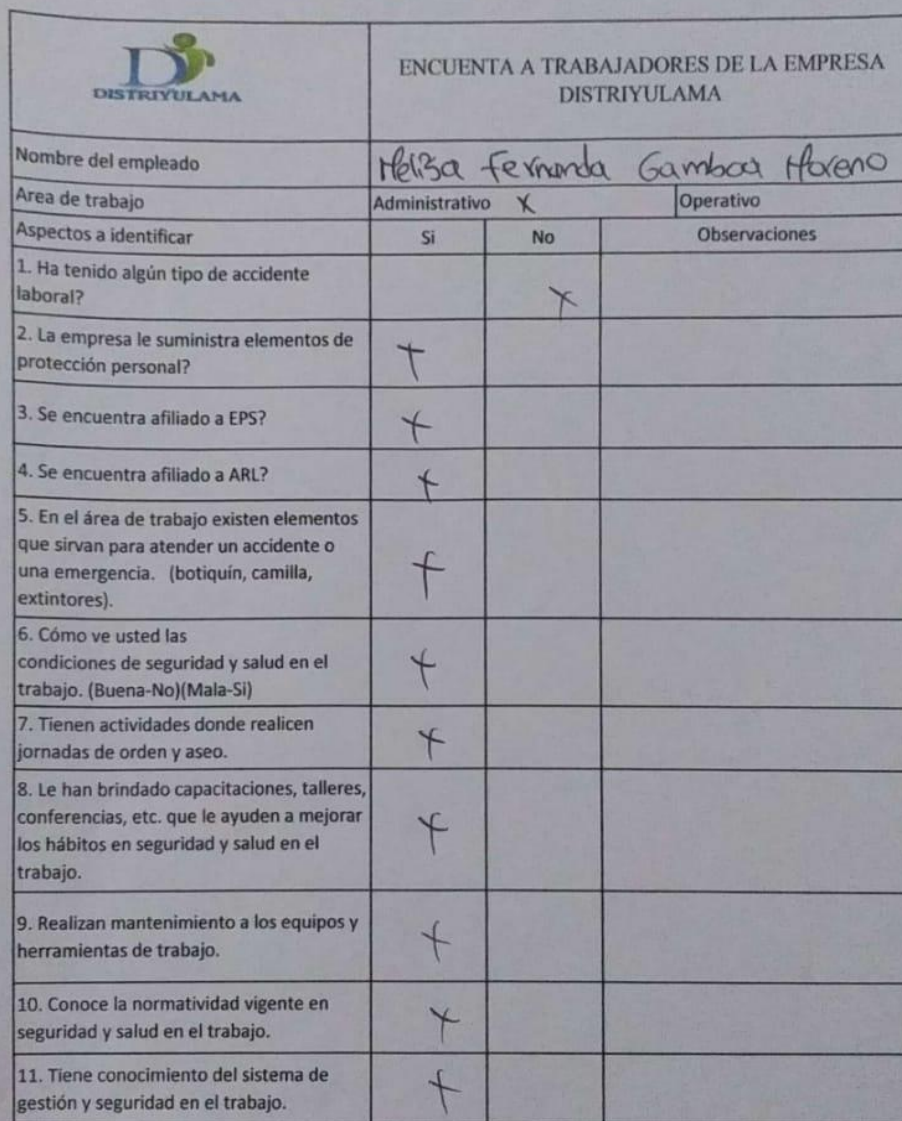 DISTRIYULAMA
ENCUENTA A TRABAJADORES DE LA EMPRESA
DISTRIYULAMA
Nombre del empleado Meliza Fernanda Gamboa Moreno
Area de trabajo Administrativo X Operativo
Aspectos a identificar Si No Observaciones
1. Ha tenido algún tipo de accidente
laboral? X
2. La empresa le suministra elementos de
protección personal? X
3. Se encuentra afiliado a EPS? X
4. Se encuentra afiliado a ARL? X
5. En el área de trabajo existen elementos
que sirvan para atender un accidente o
una emergencia. (botiquín, camilla, X
extintores).
6. Cómo ve usted las
condiciones de seguridad y salud en el X
trabajo. (Buena-No)(Mala-Si)
7. Tienen actividades donde realicen
jornadas de orden y aseo. X
8. Le han brindado capacitaciones, talleres,
conferencias, etc. que le ayuden a mejorar X
los hábitos en seguridad y salud en el
trabajo.
9. Realizan mantenimiento a los equipos y
herramientas de trabajo. X
10. Conoce la normatividad vigente en
seguridad y salud en el trabajo. X
11. Tiene conocimiento del sistema de
gestión y seguridad en el trabajo. X